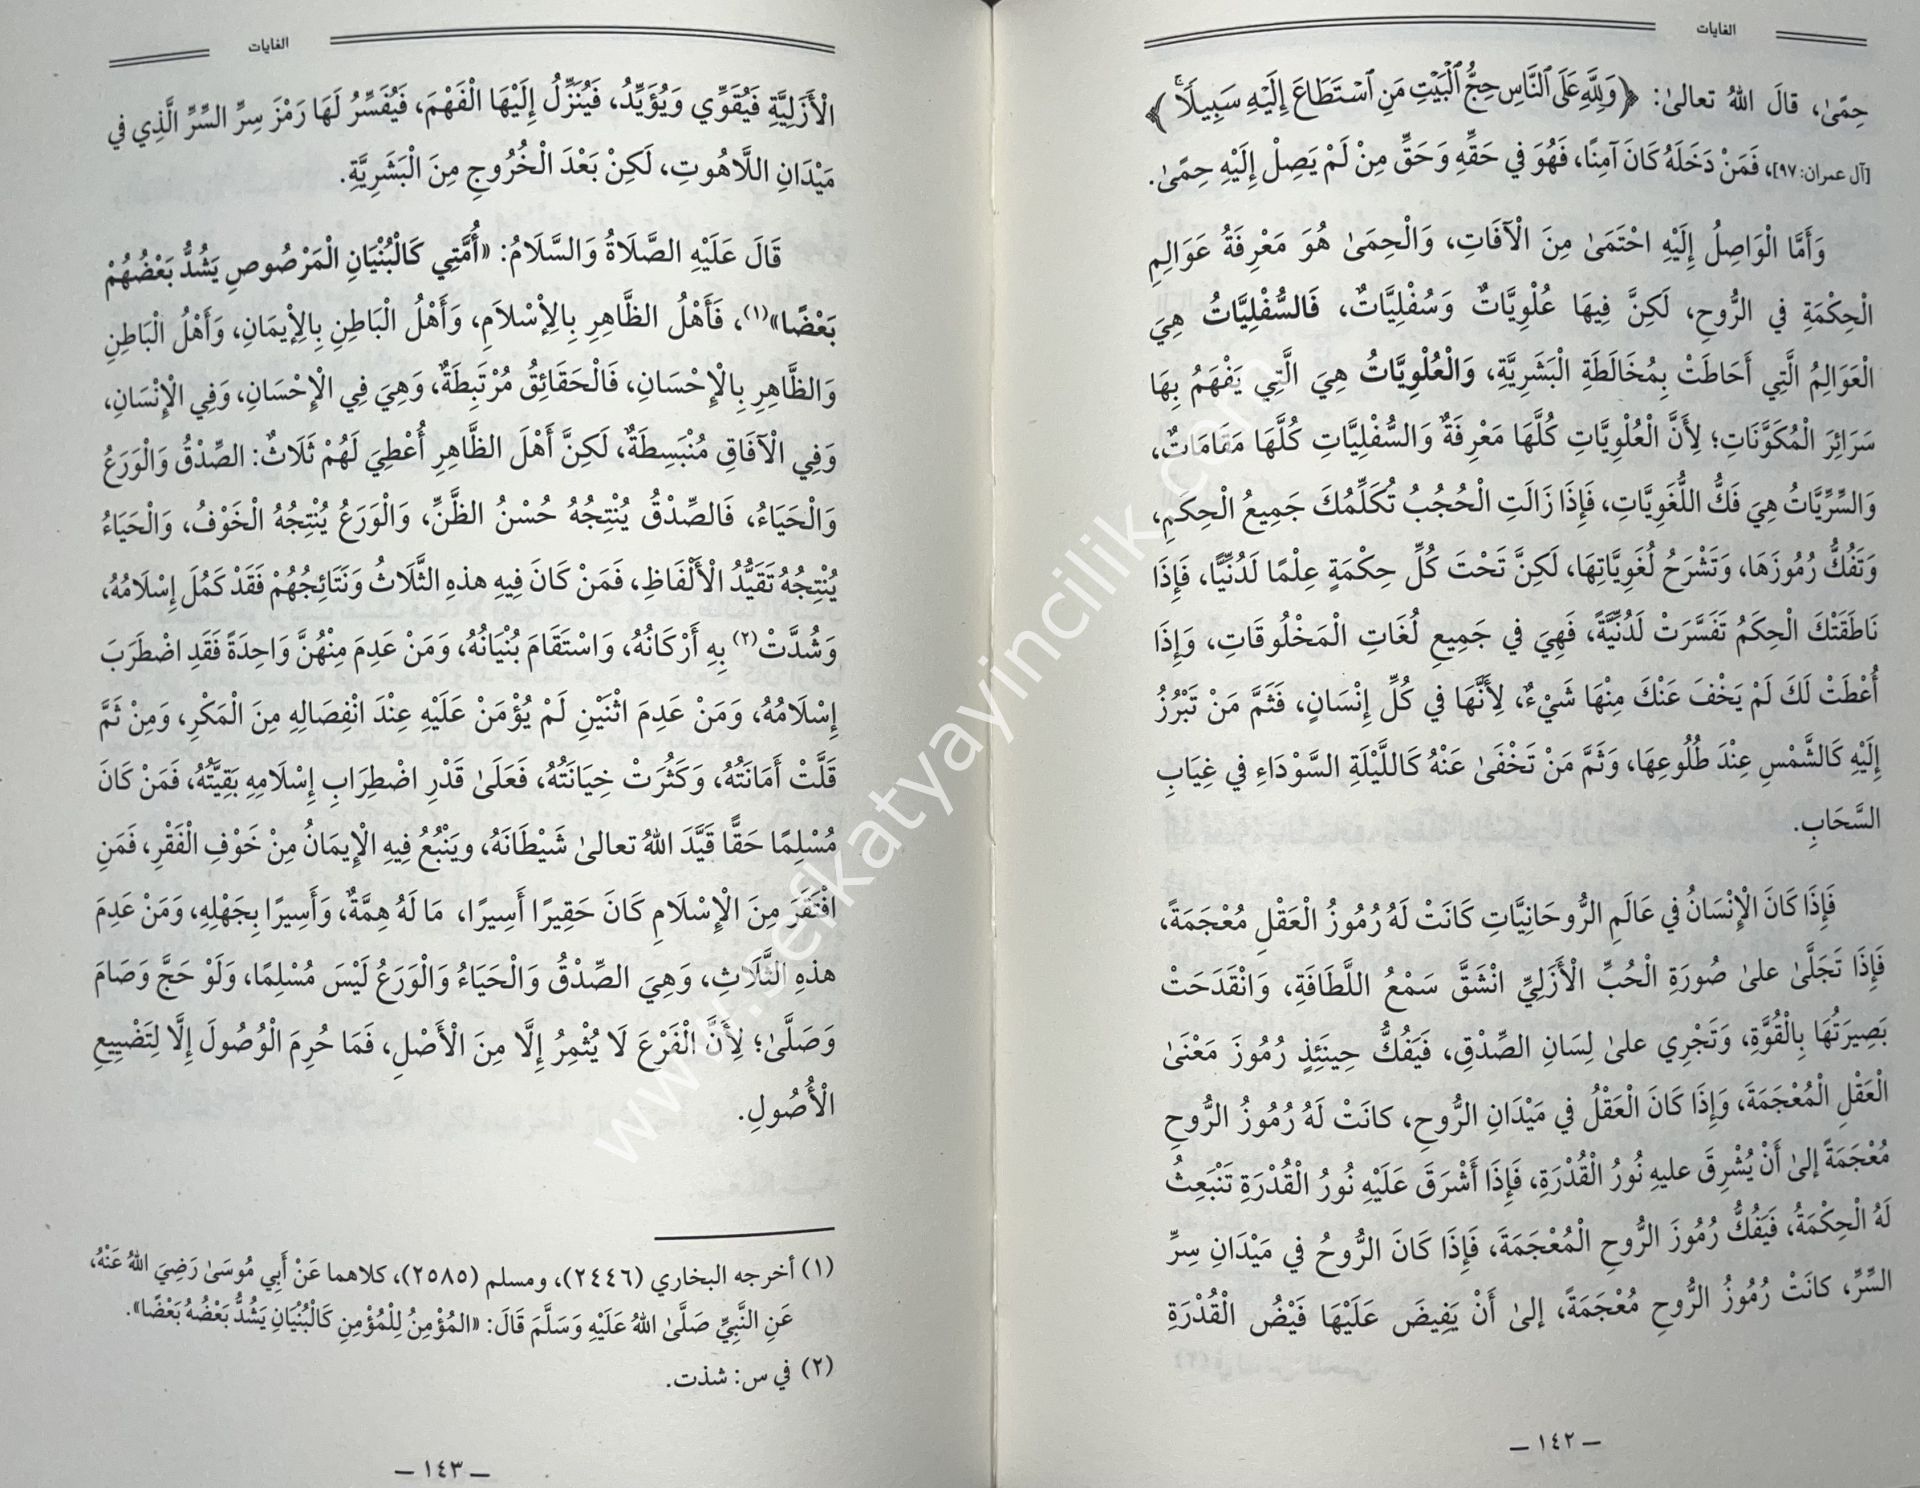 الغايات
حِمًى، قالَ اللهُ تعالىٰ: ﴿وَلِلَّهِ عَلَى ٱلنَّاسِ حِجُّ ٱلْبَيْتِ مَنِ ٱسْتَطَاعَ إِلَيْهِ سَبِيلًا ۚ﴾
[آل عمران: ٩٧]، فَمَنْ دَخَلَهُ كَانَ آمِنًا، فَهُوَ فِي حَقِّهِ وَحَقِّ مِنْ لَمْ يَصِلْ إِلَيْهِ حِمًى.
وَأَمَّا الْوَاصِلُ إِلَيْهِ احْتَمَىٰ مِنَ الْآفَاتِ، وَالْحِمَىٰ هُوَ مَعْرِفَةُ عَوَالِمِ
الْحِكْمَةِ فِي الرُّوحِ، لَكِنَّ فِيهَا عُلْوِيَّاتٌ وَسُفْلِيَّاتٌ، فَالسُّفْلِيَّاتُ هِيَ
الْعَوَالِمُ الَّتِي أَحَاطَتْ بِمُخَالَطَةِ الْبَشَرِيَّةِ، وَالْعُلْوِيَّاتُ هِيَ الَّتِي يَفْهَمُ بِهَا
سَرَائِرَ الْمُكَوَّنَاتِ؛ لِأَنَّ الْعُلْوِيَّاتِ كُلَّهَا مَعْرِفَةٌ وَالسُّفْلِيَّاتِ كُلَّهَا مَقَامَاتٌ،
وَالسِّرِّيَّاتُ هِيَ فَكُّ اللُّغَوِيَّاتِ، فَإِذَا زَالَتِ الْحُجُبُ تُكَلِّمُكَ جَمِيعُ الْحِكَمِ،
وَتَفُكُّ رُمُوزَهَا، وَتَشْرَحُ لُغَوِيَّاتِهَا، لَكِنَّ تَحْتَ كُلِّ حِكْمَةٍ عِلْمًا لَدُنِّيًّا، فَإِذَا
نَاطَقَتْكَ الْحِكَمُ تَفَسَّرَتْ لَدُنِّيَّةً، فَهِيَ فِي جَمِيعِ لُغَاتِ الْمَخْلُوقَاتِ، وَإِذَا
أُعْطَتْ لَكَ لَمْ يَخْفَ عَنْكَ مِنْهَا شَيْءٌ، لِأَنَّهَا فِي كُلِّ إِنْسَانٍ، فَثَمَّ مَنْ تَبْرُزُ
إِلَيْهِ كَالشَّمْسِ عِنْدَ طُلُوعِهَا، وَثَمَّ مَنْ تَخْفَىٰ عَنْهُ كَاللَّيْلَةِ السَّوْدَاءِ فِي غِيَابِ
السَّحَابِ.
فَإِذَا كَانَ الْإِنْسَانُ فِي عَالَمِ الرُّوحَانِيَّاتِ كَانَتْ لَهُ رُمُوزُ الْعَقْلِ مُعْجَمَةً،
فَإِذَا تَجَلَّىٰ علىٰ صُورَةِ الْحُبِّ الْأَزَلِيِّ انْشَقَّ سَمْعُ اللَّطَافَةِ، وَانْقَدَحَتْ
بَصِيرَتُهَا بِالْقُوَّةِ، وَتَجْرِي علىٰ لِسَانِ الصِّدْقِ، فَيَفُكُّ حِينَئِذٍ رُمُوزَ مَعْنَىٰ
الْعَقْلِ الْمُعْجَمَةَ، وَإِذَا كَانَ الْعَقْلُ فِي مَيْدَانِ الرُّوحِ، كانَتْ لَهُ رُمُوزُ الرُّوحِ
مُعْجَمَةً إلىٰ أَنْ يُشْرِقَ عليهِ نُورُ الْقُدْرَةِ، فَإِذَا أَشْرَقَ عَلَيْهِ نُورُ الْقُدْرَةِ تَنْبَعِثُ
لَهُ الْحِكْمَةُ، فَيَفُكُّ رُمُوزَ الرُّوحِ الْمُعْجَمَةَ، فَإِذَا كَانَ الرُّوحُ فِي مَيْدَانِ سِرِّ
السِّرِّ، كانَتْ رُمُوزُ الرُّوحِ مُعْجَمَةً، إلىٰ أَنْ يَفِيضَ عَلَيْهَا فَيْضُ الْقُدْرَةِ
— ١٤٢ —
الغايات
الْأَزَلِيَّةِ فَيُقَوِّي وَيُؤَيِّدُ، فَيُنَزِّلُ إِلَيْهَا الْفَهْمَ، فَيُفَسِّرُ لَهَا رَمْزَ سِرِّ السِّرِّ الَّذِي فِي
مَيْدَانِ اللَّاهُوتِ، لَكِنْ بَعْدَ الْخُرُوجِ مِنَ الْبَشَرِيَّةِ.
قَالَ عَلَيْهِ الصَّلَاةُ وَالسَّلَامُ: «أُمَّتِي كَالْبُنْيَانِ الْمَرْصُوصِ يَشُدُّ بَعْضُهُمْ
بَعْضًا»(١)، فَأَهْلُ الظَّاهِرِ بِالْإِسْلَامِ، وَأَهْلُ الْبَاطِنِ بِالْإِيمَانِ، وَأَهْلُ الْبَاطِنِ
وَالظَّاهِرِ بِالْإِحْسَانِ، فَالْحَقَائِقُ مُرْتَبِطَةٌ، وَهِيَ فِي الْإِحْسَانِ، وَفِي الْإِنْسَانِ،
وَفِي الْآفَاقِ مُنْبَسِطَةٌ، لَكِنَّ أَهْلَ الظَّاهِرِ أُعْطِيَ لَهُمْ ثَلَاثٌ: الصِّدْقُ وَالْوَرَعُ
وَالْحَيَاءُ، فَالصِّدْقُ يُنْتِجُهُ حُسْنُ الظَّنِّ، وَالْوَرَعُ يُنْتِجُهُ الْخَوْفُ، وَالْحَيَاءُ
يُنْتِجُهُ تَقَيُّدُ الْأَلْفَاظِ، فَمَنْ كَانَ فِيهِ هذهِ الثَّلَاثُ وَنَتَائِجُهُمْ فَقَدْ كَمُلَ إِسْلَامُهُ،
وَشُدَّتْ(٢) بِهِ أَرْكَانُهُ، وَاسْتَقَامَ بُنْيَانُهُ، وَمَنْ عَدِمَ مِنْهُنَّ وَاحِدَةً فَقَدِ اضْطَرَبَ
إِسْلَامُهُ، وَمَنْ عَدِمَ اثْنَيْنِ لَمْ يُؤْمَنْ عَلَيْهِ عِنْدَ انْفِصَالِهِ مِنَ الْمَكْرِ، وَمِنْ ثَمَّ
قَلَّتْ أَمَانَتُهُ، وَكَثُرَتْ خِيَانَتُهُ، فَعَلَىٰ قَدْرِ اضْطِرَابِ إِسْلَامِهِ بَقِيَّتُهُ، فَمَنْ كَانَ
مُسْلِمًا حَقًّا قَيَّدَ اللهُ تعالىٰ شَيْطَانَهُ، ويَنْبُعُ فِيهِ الْإِيمَانُ مِنْ خَوْفِ الْفَقْرِ، فَمَنِ
افْتَقَرَ مِنَ الْإِسْلَامِ كَانَ حَقِيرًا أَسِيرًا، مَا لَهُ هِمَّةٌ، وَأَسِيرًا بِجَهْلِهِ، وَمَنْ عَدِمَ
هذهِ الثَّلَاثِ، وَهِيَ الصِّدْقُ وَالْحَيَاءُ وَالْوَرَعُ لَيْسَ مُسْلِمًا، وَلَوْ حَجَّ وَصَامَ
وَصَلَّىٰ؛ لِأَنَّ الْفَرْعَ لَا يُثْمِرُ إِلَّا مِنَ الْأَصْلِ، فَمَا حُرِمَ الْوُصُولَ إِلَّا لِتَضْيِيعِ
الْأُصُولِ.
(١) أخرجه البخاري (٢٤٤٦)، ومسلم (٢٥٨٥)، كلاهما عَنْ أَبِي مُوسَىٰ رَضِيَ اللهُ عَنْهُ،
عَنِ النَّبِيِّ صَلَّى اللهُ عَلَيْهِ وَسَلَّمَ قَالَ: «المُؤْمِنُ لِلْمُؤْمِنِ كَالْبُنْيَانِ يَشُدُّ بَعْضُهُ بَعْضًا».
(٢) في س: شذت.
— ١٤٣ —
www.sefkatyayincilik.com